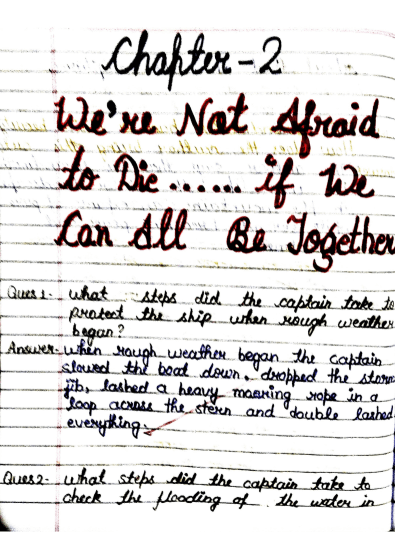 Chapter-2
We're Not Afraid
to Die...... if We
Can All Be Together
Ques 1- what steps did the captain take to
protect the ship when rough weather
began?
Answer- when rough weather began the captain
slowed the boat down, dropped the storm
jib, lashed a heavy mooring rope in a
loop across the stern and double lashed
everything.
Ques 2- what steps did the captain take to
check the flooding of the water in